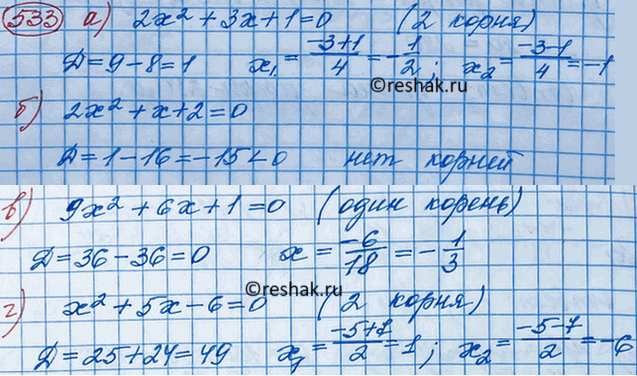 533 а) 2x² + 3x + 1 = 0 (2 корня)
Д = 9 - 8 = 1 x₁ = (-3+1)/4 = -1/2; x₂ = (-3-1)/4 = -1
©reshak.ru
б) 2x² + x + 2 = 0
Д = 1 - 16 = -15 < 0 нет корней
в) 9x² + 6x + 1 = 0 (один корень)
Д = 36 - 36 = 0 x = -6/18 = -1/3
©reshak.ru
г) x² + 5x - 6 = 0 (2 корня)
Д = 25 + 24 = 49 x₁ = (-5+7)/2 = 1; x₂ = (-5-7)/2 = -6